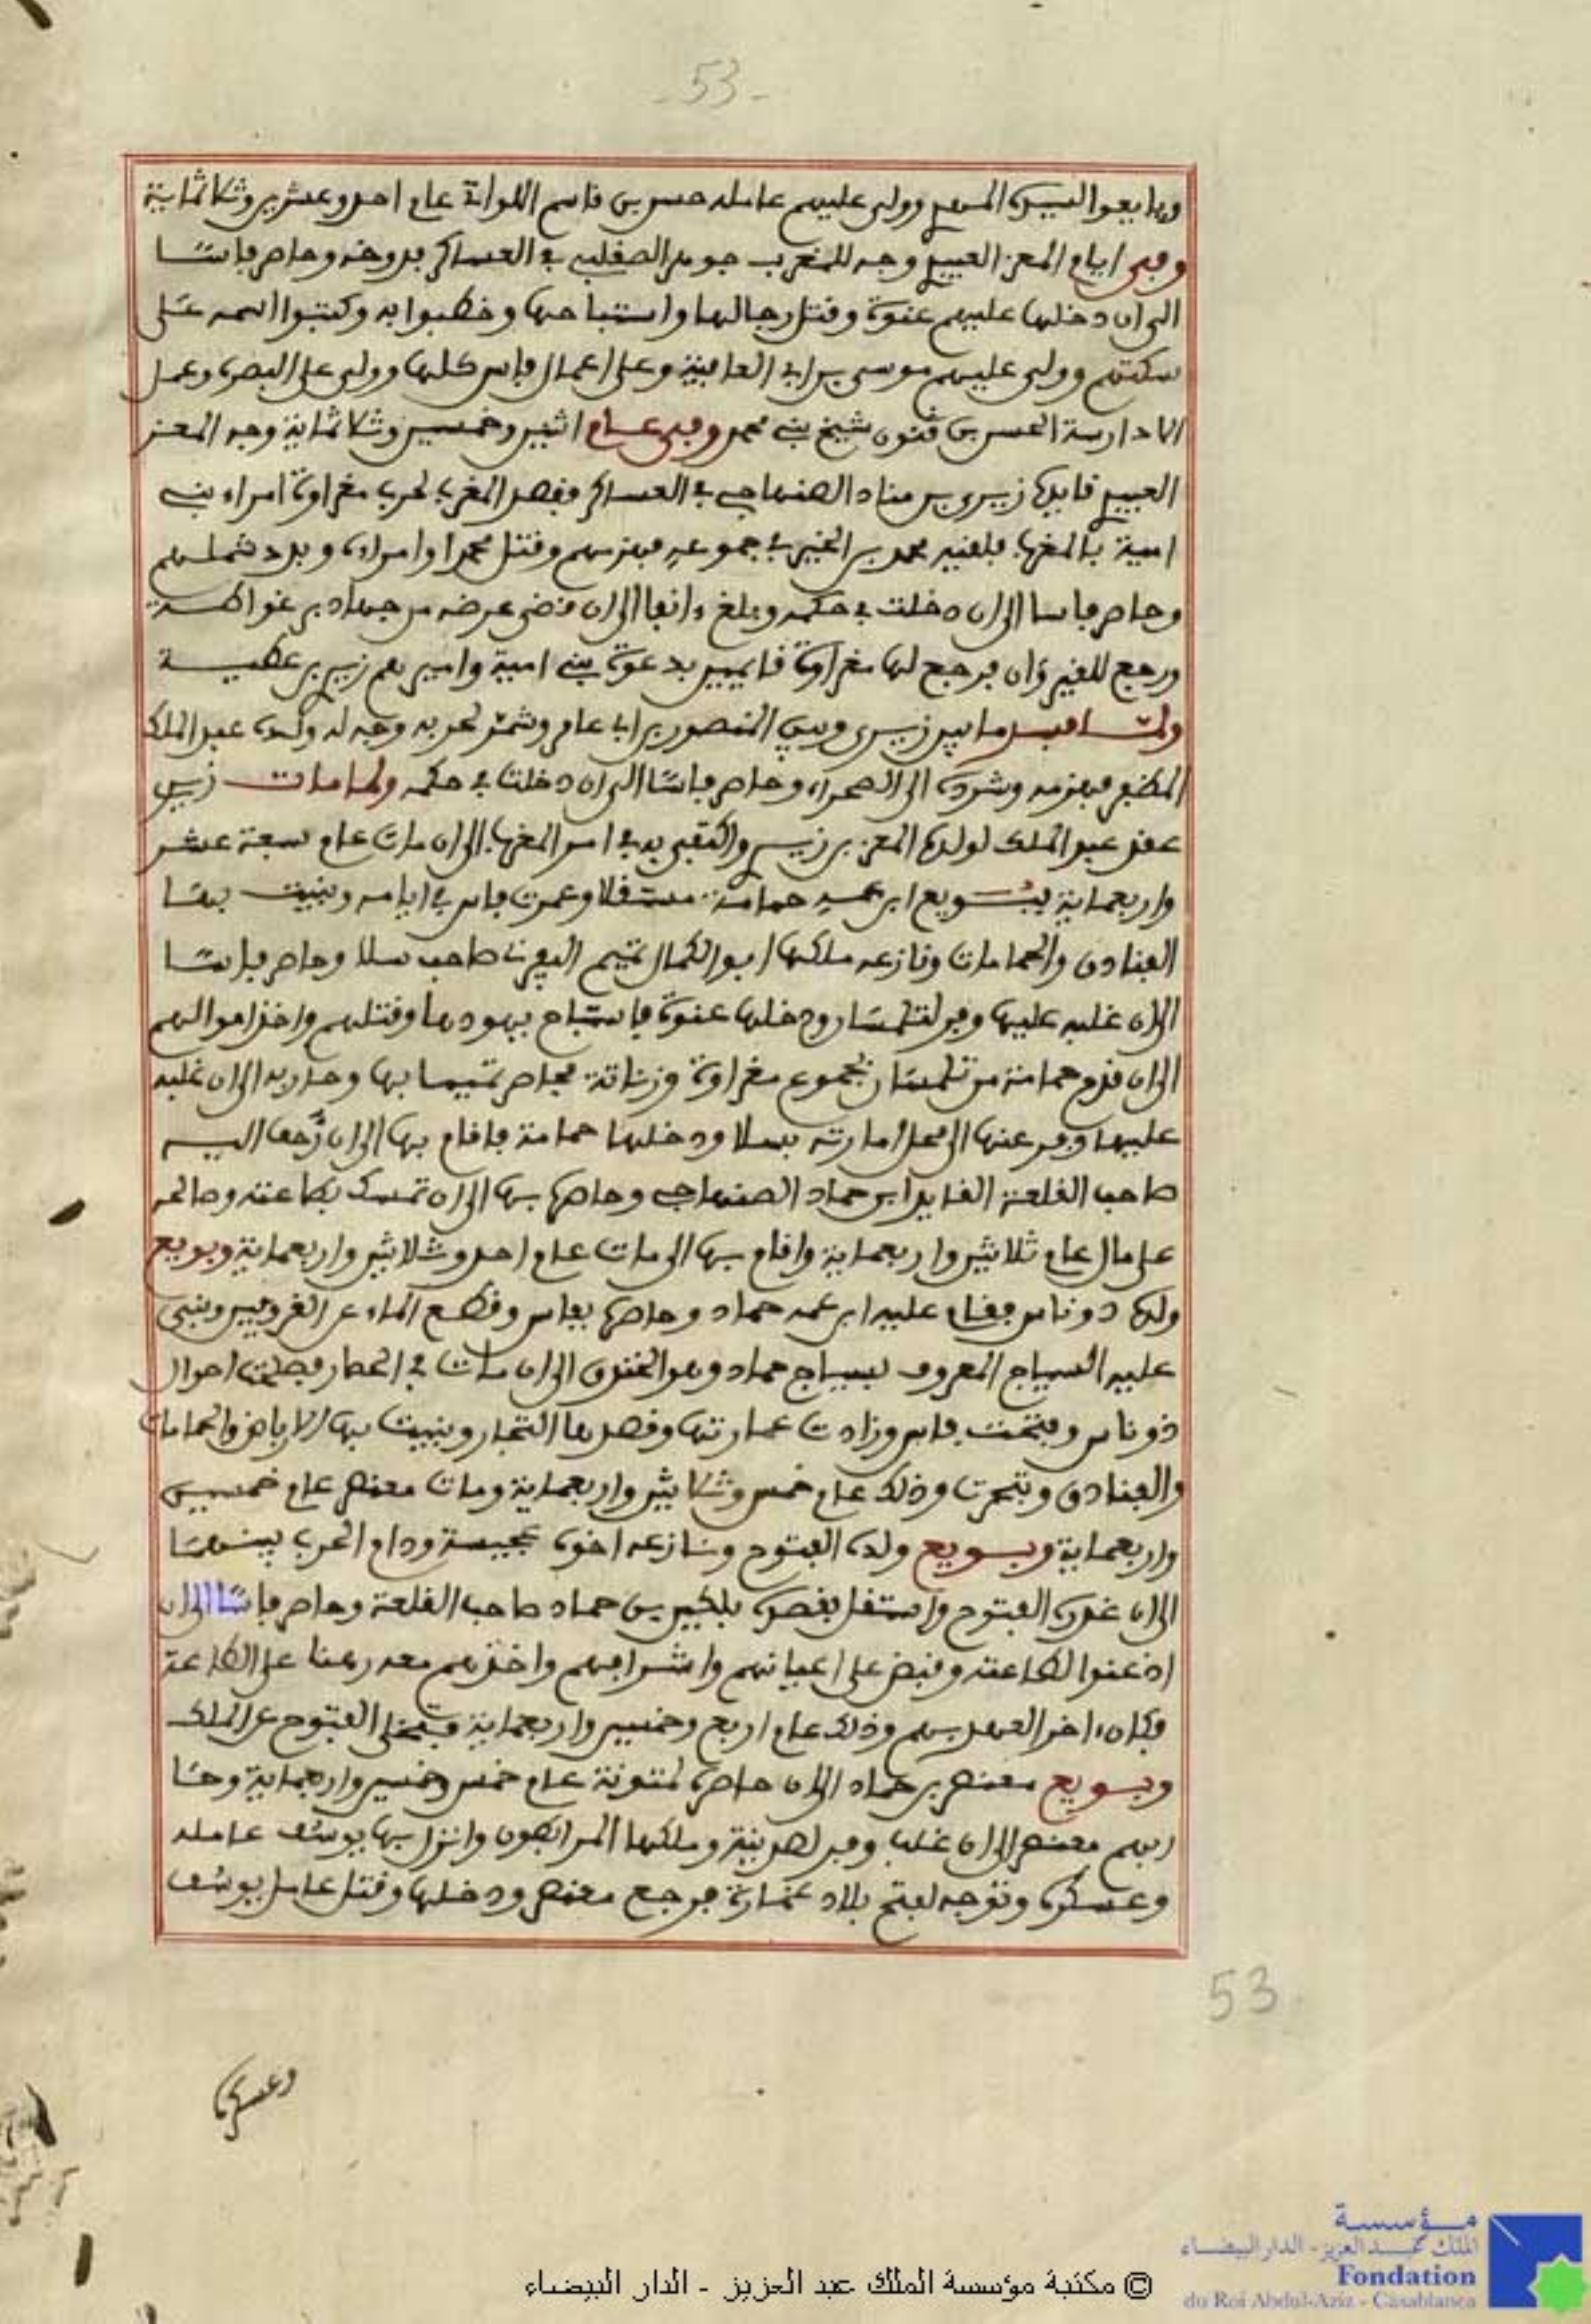 -53-
وبايعوا المهدي وولى عليهم عامله حسن بن قاسم اللواتي عام احد وعشرين وثلاثماية
وفي ايام المعز العبيدي وجه للمغرب جوهر الصقلبي في العساكر فدوخه وحاصر فاسًا
الى ان دخلها عليهم عنوة وقتل رجالها واستباحها وخطبوا به وكتبوا اسمه على
سكتهم وولى عليهم موسى بن ابي العافية وعلى اعمال فاس كلها وولى على البصرة وعمل
الادارسة الحسن بن قنون شيخ بني محمد وفي عام اثنين وخمسين وثلاثماية وجه المعز
العبيدي قايده زيري بن مناد الصنهاجي في العساكر فقصد المغرب لحرب مغراوة امراء بني
امية بالمغرب فلقيه محمد بن الخير في جموعه فهزمهم وقتل محمدا وامراءه وبدد شملهم
وحاصر فاسا الى ان دخلت في حكمه وبلغ ءانفا الى ان قضى غرضه من جهاد برغواطة
ورجع للقيروان فرجع لها مغراوة قايمين بدعوة بني امية واميرهم زيري بن عطية
ولما فسد ما بين زيري وبين المنصور بن ابي عامر وشمر لحربه وجه له ولده عبد الملك
المظفر فهزمه وشرده الى الصحراء وحاصر فاسًا الى ان دخلت في حكمه ولما مات زيري
عقد عبد الملك لولده المعز بن زيري واكتفى به في امر المغرب الى ان مات عام سبعة عشر
واربعماية فبويع ابن عمه حمامة مستقلا وعمرت فاس في ايامه وبنيت بها
الفنادق والحمامات ونازعه ملكها ابو الكمال تميم اليفرني صاحب سلا وحاصر فاسًا
الى ان غلبه عليها وفر لتلمسان ودخلها عنوة فاستباح يهودها وقتلهم واخذ اموالهم
الى ان قدم حمامة من تلمسان بجموع مغراوة وزناتة فحاصر تميما بها وحاربه الى ان غلبه
عليها وفر عنها الى محل امارته بسلا ودخلها حمامة فاقام بها الى ان زحف اليه
صاحب القلعة القايد ابن حماد الصنهاجي وحاصره بها الى ان تمسك بطاعته وصالحه
على مال عام ثلاثين واربعماية واقام بها الى مات عام احد وثلاثين واربعماية وبويع
ولده دوناس فقام عليه ابن عمه حماد وحاصره بفاس وقطع الماء عن القرويين وبنى
عليه السياج المعروف بسياج حماد وهو الخندق الى ان مات في الحصار فصلحت احوال
دوناس وفتحت فاس وزادت عمارتها وقصدها التجار وبنيت بها الارباض والحمامات
والفنادق وتبحرت وذلك عام خمس وثلاثين واربعماية ومات معنصر عام خمسين
واربعماية وبويع ولده الفتوح ونازعه اخوه عجيسة ودام الحرب بينهما
الى ان غدره الفتوح واستقل بقصره بلكين بن حماد صاحب القلعة وحاصر فاسًا الى ان
اذعنوا لطاعته وقبض على اعيانهم واشرافهم واخذهم معه رهنا على الطاعة
فكان ءاخر العهد بهم وذلك عام اربع وخمسين واربعماية فتخلى الفتوح عن الملك
وبويع معنصر بن حماد الى ان حاصره لمتونة عام خمس وخمسين واربعماية وحا
ربهم معنصر الى ان غلب وفر لصدينة وملكها المرابطون وانزل بها يوسف عامله
وعسكره وتوجه لفتح بلاد غمارة فرجع معنصر ودخلها وقتل عامل يوسف
53
وعسكره
مؤسسة
الملك عبد العزيز - الدار البيضاء
Fondation
du Roi Abdul-Aziz - Casablanca
© مكتبة مؤسسة الملك عبد العزيز - الدار البيضاء